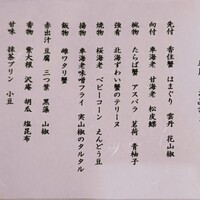 先付　香住蟹　はまぐり　雲丹　花山椒
向付　車海老　甘海老　松皮鰈
椀物　たらば蟹　アスパラ　茗荷　青柚子
強肴　北海ずわい蟹のテリーヌ
焼物　桜海老　ベビーコーン　えんどう豆
揚物　車海老味噌フライ　実山椒のタルタル
飯物　雌ワタリ蟹
赤出汁　豆腐　三つ葉　黒藻　山椒
香物　紫大根　沢庵　胡瓜　塩昆布
甘味　抹茶プリン　小豆